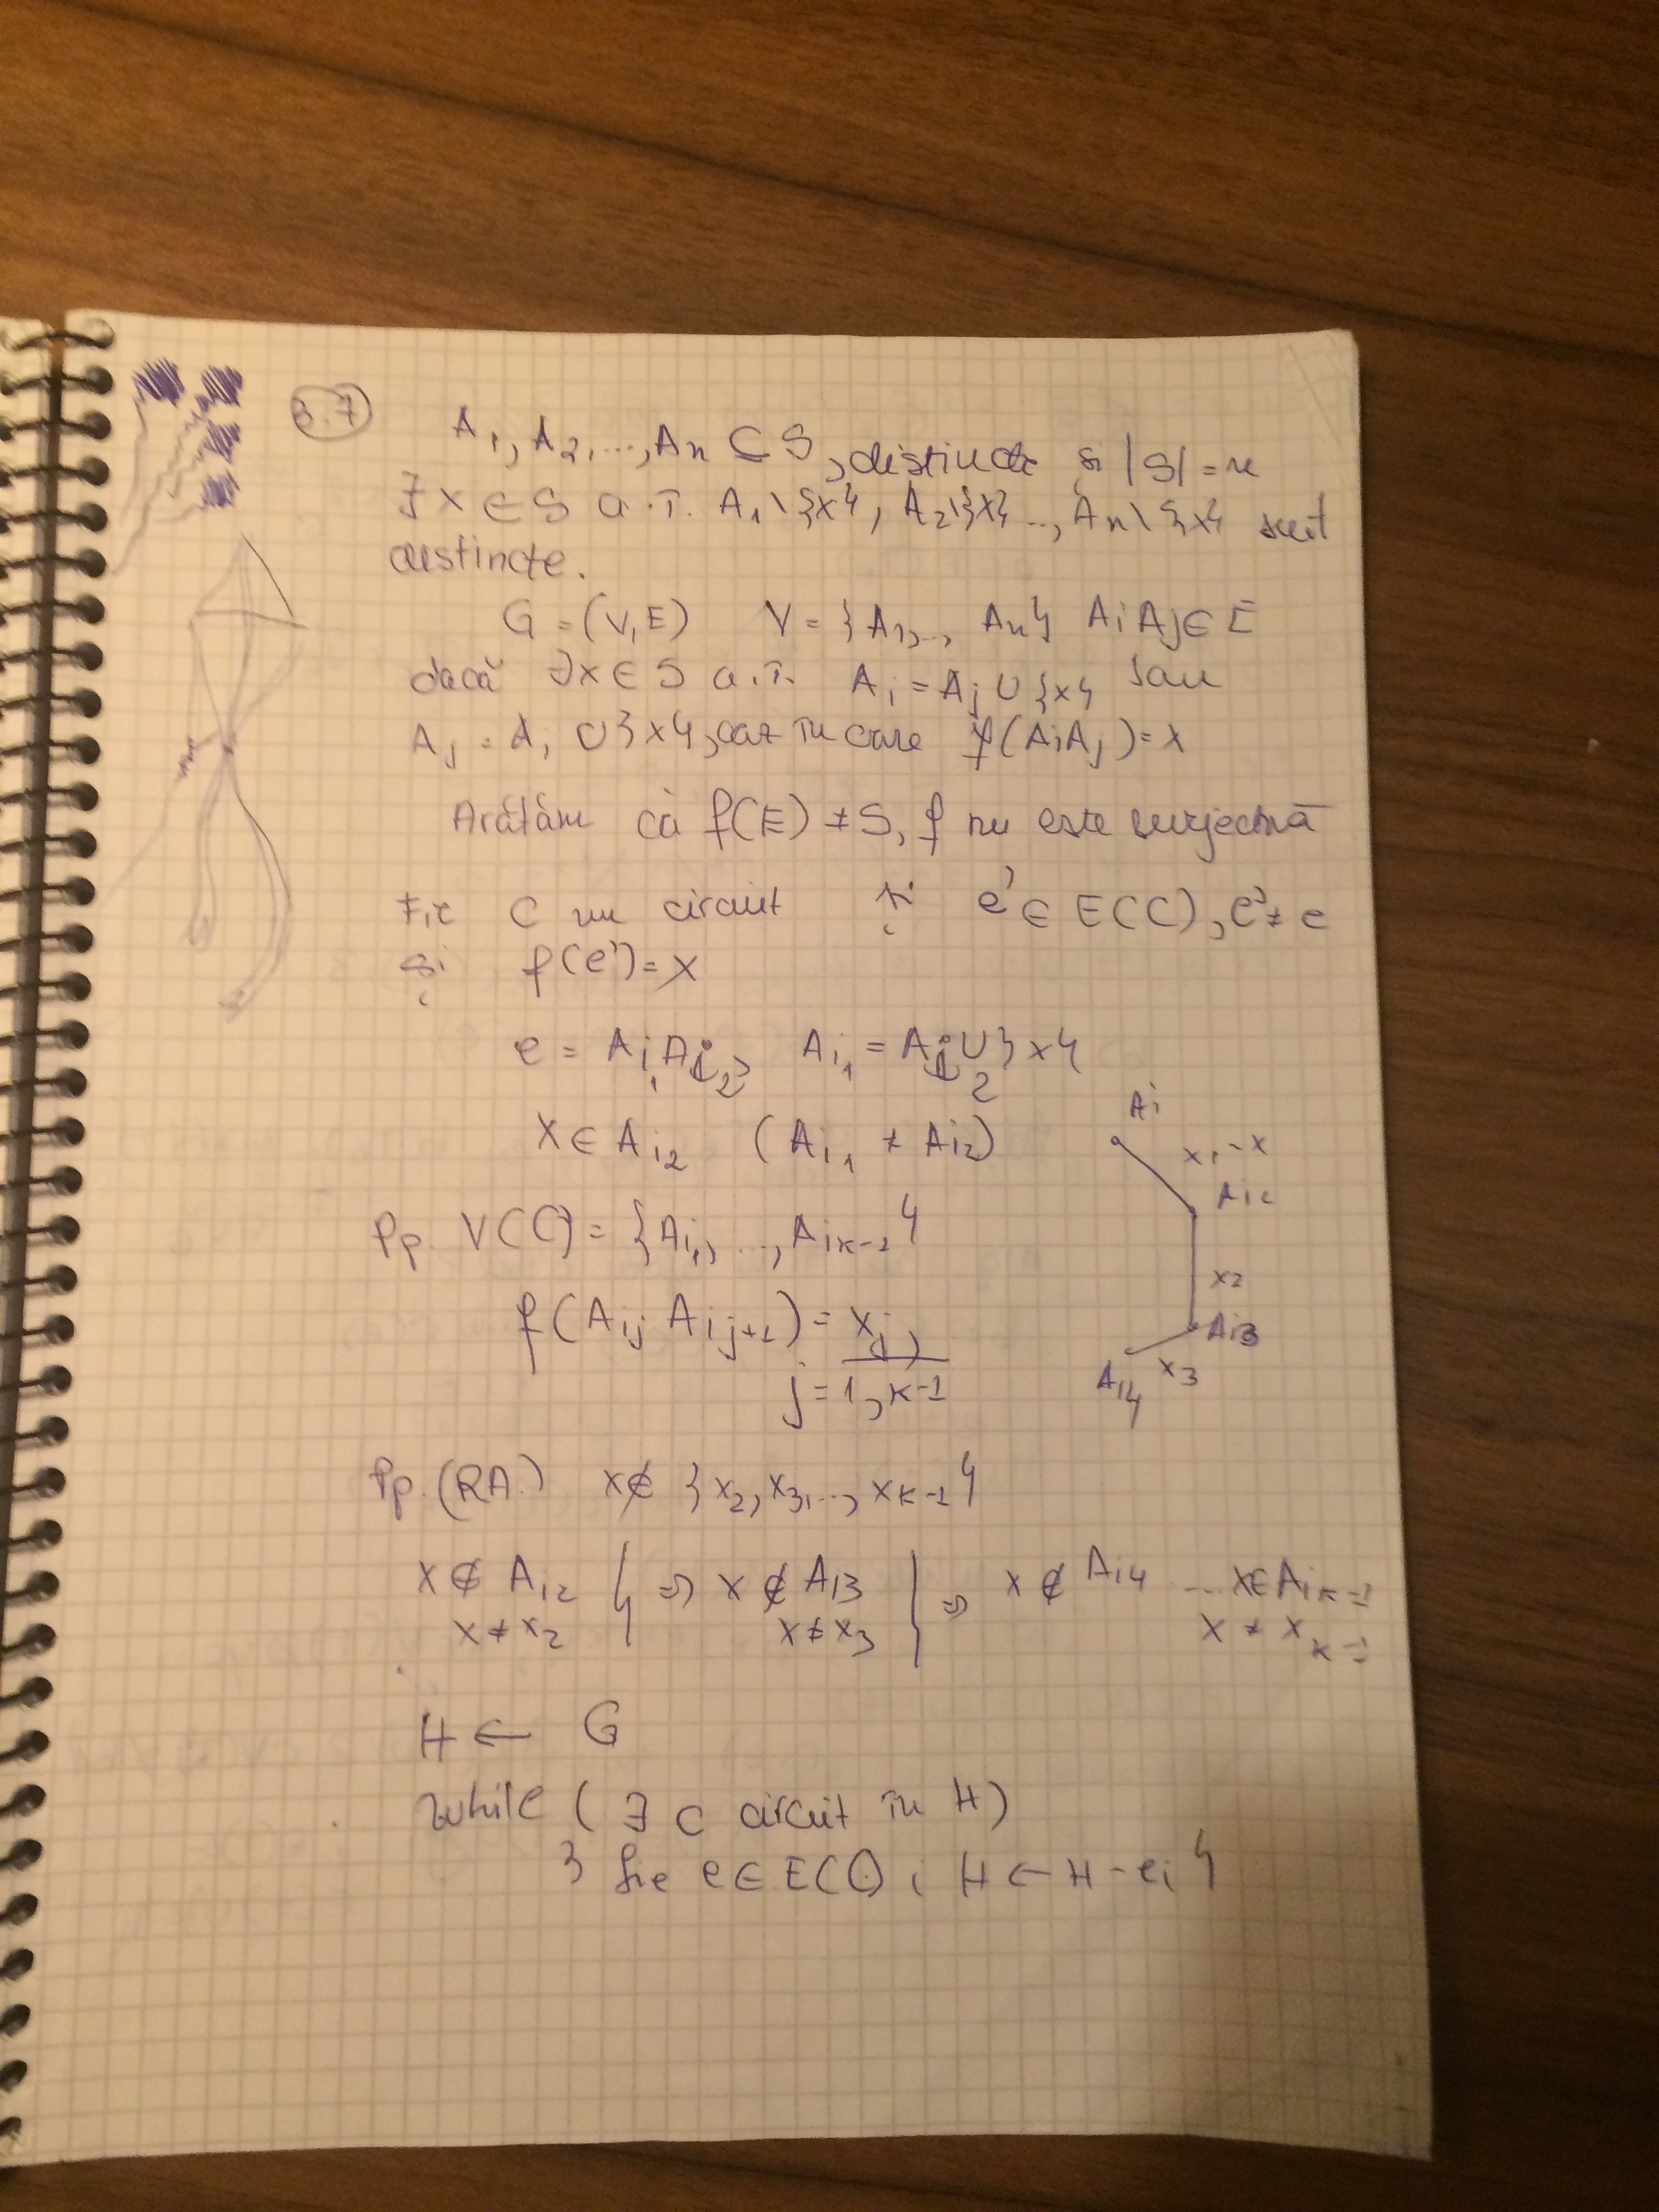 3.7
A₁, A₂, ..., Aₙ ⊆ S, distincte și |S| = n
∃ x ∈ S a.î. A₁\{x}, A₂\{x}, ..., Aₙ\{x} sunt
distincte.
G = (V, E) V = {A₁, ..., Aₙ} AᵢAⱼ ∈ E
dacă ∃x ∈ S a.î. Aᵢ = Aⱼ ∪ {x} sau
Aⱼ = Aᵢ ∪ {x}, caz în care f(AᵢAⱼ) = x
Arătăm că f(E) ≠ S, f nu este surjectivă
Fie C un circuit și e' ∈ E(C), e' ≠ e
și f(e') = x
e = Aᵢ₁Aᵢ₂, Aᵢ₁ = Aᵢ₂ ∪ {x}
x ∈ Aᵢ₂ (Aᵢ₁ ≠ Aᵢ₂)
Pp. V(C) = {Aᵢ₁, ..., Aᵢₖ₋₁}
f(Aᵢⱼ Aᵢⱼ₊₁) = xⱼ,
j = 1, k-1
Ai
x₁ - x
Ai₂
x₂
Ai₃
x₃
Ai₄
Pp. (RA.) x ∉ {x₂, x₃, ..., xₖ₋₁}
x ∉ Aᵢ₂ } ⇒ x ∉ Aᵢ₃ } ⇒ x ∉ Aᵢ₄ ... x ∈ Aᵢₖ₋₁
x ≠ x₂ x ≠ x₃ x ≠ xₖ₋₁
H ← G
while (∃ C circuit în H)
{ fie e ∈ E(C); H ← H - e; }